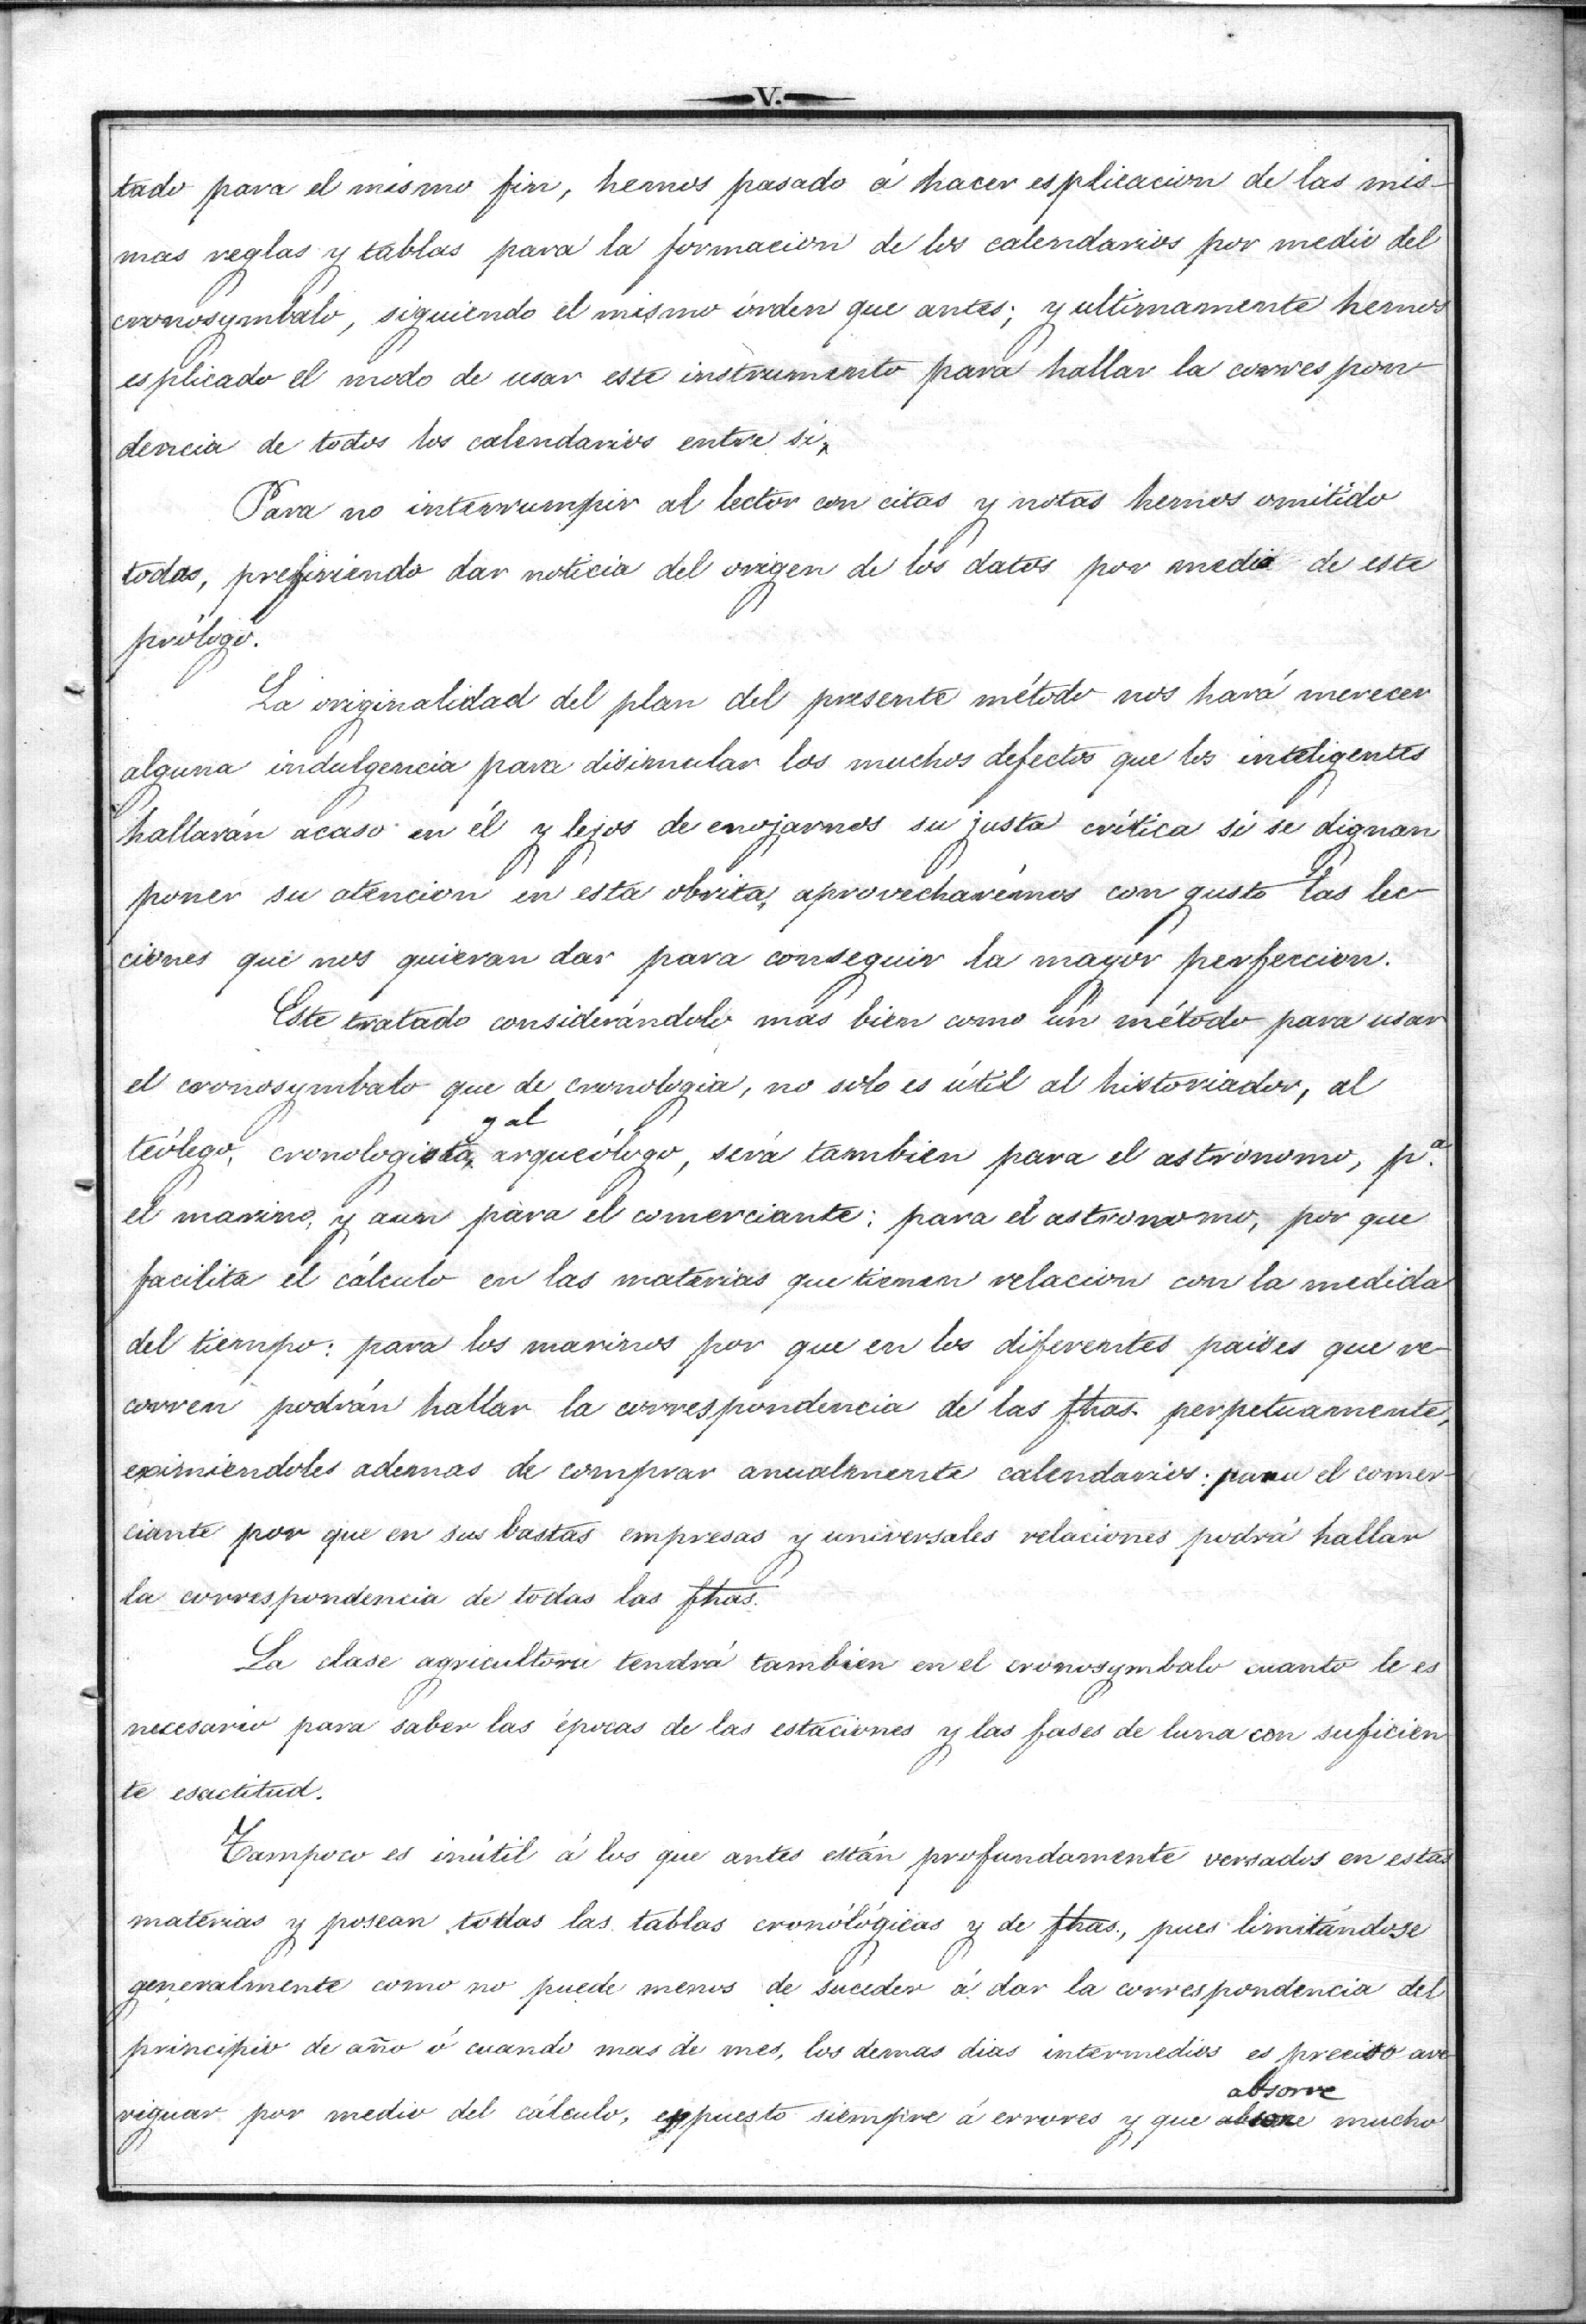 V.
tado para el mismo fin, hemos pasado á hacer esplicacion de las mis-
mas reglas y tablas para la formacion de los calendarios por medio del
cronosymbalo, siguiendo el mismo órden que antes; y ultimamente hemos
esplicado el modo de usar este instrumento para hallar la correspon-
dencia de todos los calendarios entre si.
Para no interrumpir al lector con citas y notas hemos omitido
todas, prefiriendo dar noticia del origen de los datos por medio de este
prólogo.
La originalidad del plan del presente método nos hará merecer
alguna indulgencia para disimular los muchos defectos que los inteligentes
hallarán acaso en él y lejos de enojarnos su justa crítica si se dignan
poner su atencion en esta obrita, aprovecharémos con gusto las lec-
ciones que nos quieran dar para conseguir la mayor perfeccion.
Este tratado considerándolo mas bien como un método para usar
el cronosymbalo que de cronologia, no solo es útil al historiador, al
teólogo, cronologista, y al arqueólogo, será tambien para el astrónomo, p.ª
el marino, y aun para el comerciante: para el astronomo, por que
facilita el cálculo en las materias que tienen relacion con la medida
del tiempo: para los marinos por que en los diferentes paises que re-
corren podrán hallar la correspondencia de las fhas. perpetuamente,
eximiendoles ademas de comprar anualmente calendarios: para el comer-
ciante por que en sus bastas empresas y universales relaciones podrá hallar
la correspondencia de todas las fhas.
La clase agricultora tendrá tambien en el cronosymbalo cuanto le es
necesario para saber las épocas de las estaciones y las fases de luna con suficien
te esactitud.
Tampoco es inútil á los que antes están profundamente versados en estas
materias y posean todas las tablas cronólógicas y de fhas., pues limitándose
generalmente como no puede menos de suceder á dar la correspondencia del
principio de año ó cuando mas de mes, los demas dias intermedios es preciso ave
riguar por medio del cálculo, espuesto siempre á errores y que absorve mucho